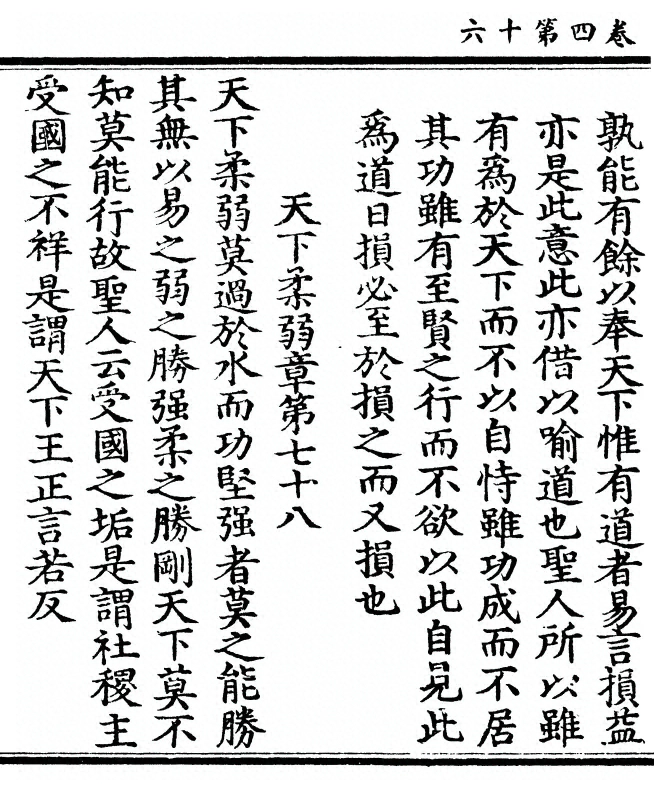 卷四第十六
孰能有餘以奉天下惟有道者易言損益
亦是此意此亦借以喻道也聖人所以雖
有爲於天下而不以自恃雖功成而不居
其功雖有至賢之行而不欲以此自見此
爲道日損必至於損之而又損也
天下柔弱章第七十八
天下柔弱莫過於水而功堅强者莫之能勝
其無以易之弱之勝强柔之勝剛天下莫不
知莫能行故聖人云受國之垢是謂社稷主
受國之不祥是謂天下王正言若反